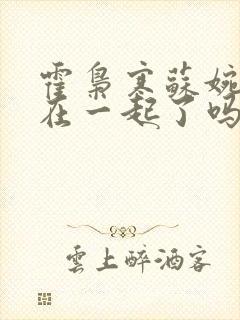 霍梟寒蘇婉
在一起了吗
雲上醉酒客